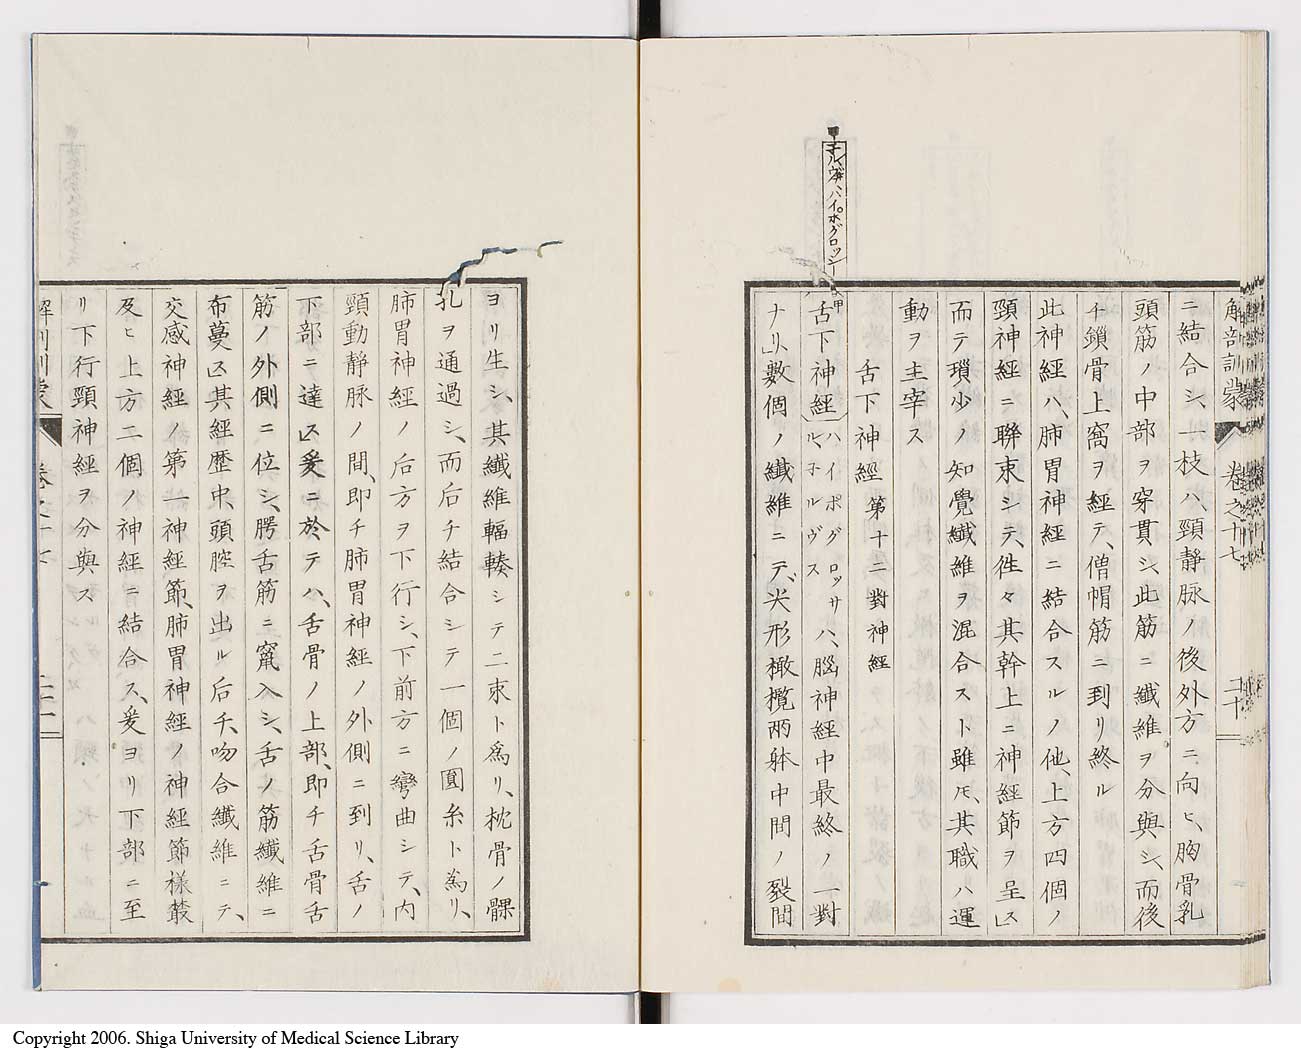 解剖訓蒙 卷之十七 二十
ニ結合シ、一枝ハ、頸靜脉ノ後外方ニ、向ヒ、胸骨乳
頭筋ノ中部ヲ穿貫シ、此筋ニ纖維ヲ分與シ、而後
チ鎖骨上窩ヲ經テ、僧帽筋ニ到リ終ル
此神經ハ、肺胃神經ニ結合スルノ他、上方四個ノ
頸神經ニ聯束シテ、徃々其幹上ニ神經節ヲ呈ス」
而テ瑣少ノ知覺纖維ヲ混合スト雖𪜈、其職ハ運
動ヲ主宰ス
舌下神經 第十二對神經
甲
ネルヴ井、ハイポグロッシー
甲
舌下神經(ハイポグロッサルネルヴス)ハ、腦神經中最終ノ一對
ナリ、」數個ノ纖維ニテ、尖形橄欖兩躰中間ノ裂間
ヨリ生シ、其纖維輻輳シテ二束ト爲リ、枕骨ノ髁
孔ヲ通過シ、而后チ結合シテ一個ノ圓糸ト爲リ、
肺胃神經ノ后方ヲ下行シ、下前方ニ彎曲シテ、內
頸動靜脉ノ間、即チ肺胃神經ノ外側ニ到リ、舌ノ
下部ニ達ス」爰ニ於テハ、舌骨ノ上部、即チ舌骨舌
筋ノ外側ニ位シ、腭舌筋ニ竄入シ、舌ノ筋纖維ニ
布蔓ス」其經歴中、頭腔ヲ出ル后チ、吻合纖維ニテ、
交感神經ノ第一神經節、肺胃神經ノ神經節樣叢
及ヒ上方二個ノ神經ニ結合ス、爰ヨリ下部ニ至
リ下行頸神經ヲ分與ス
解剖訓蒙 卷之十七